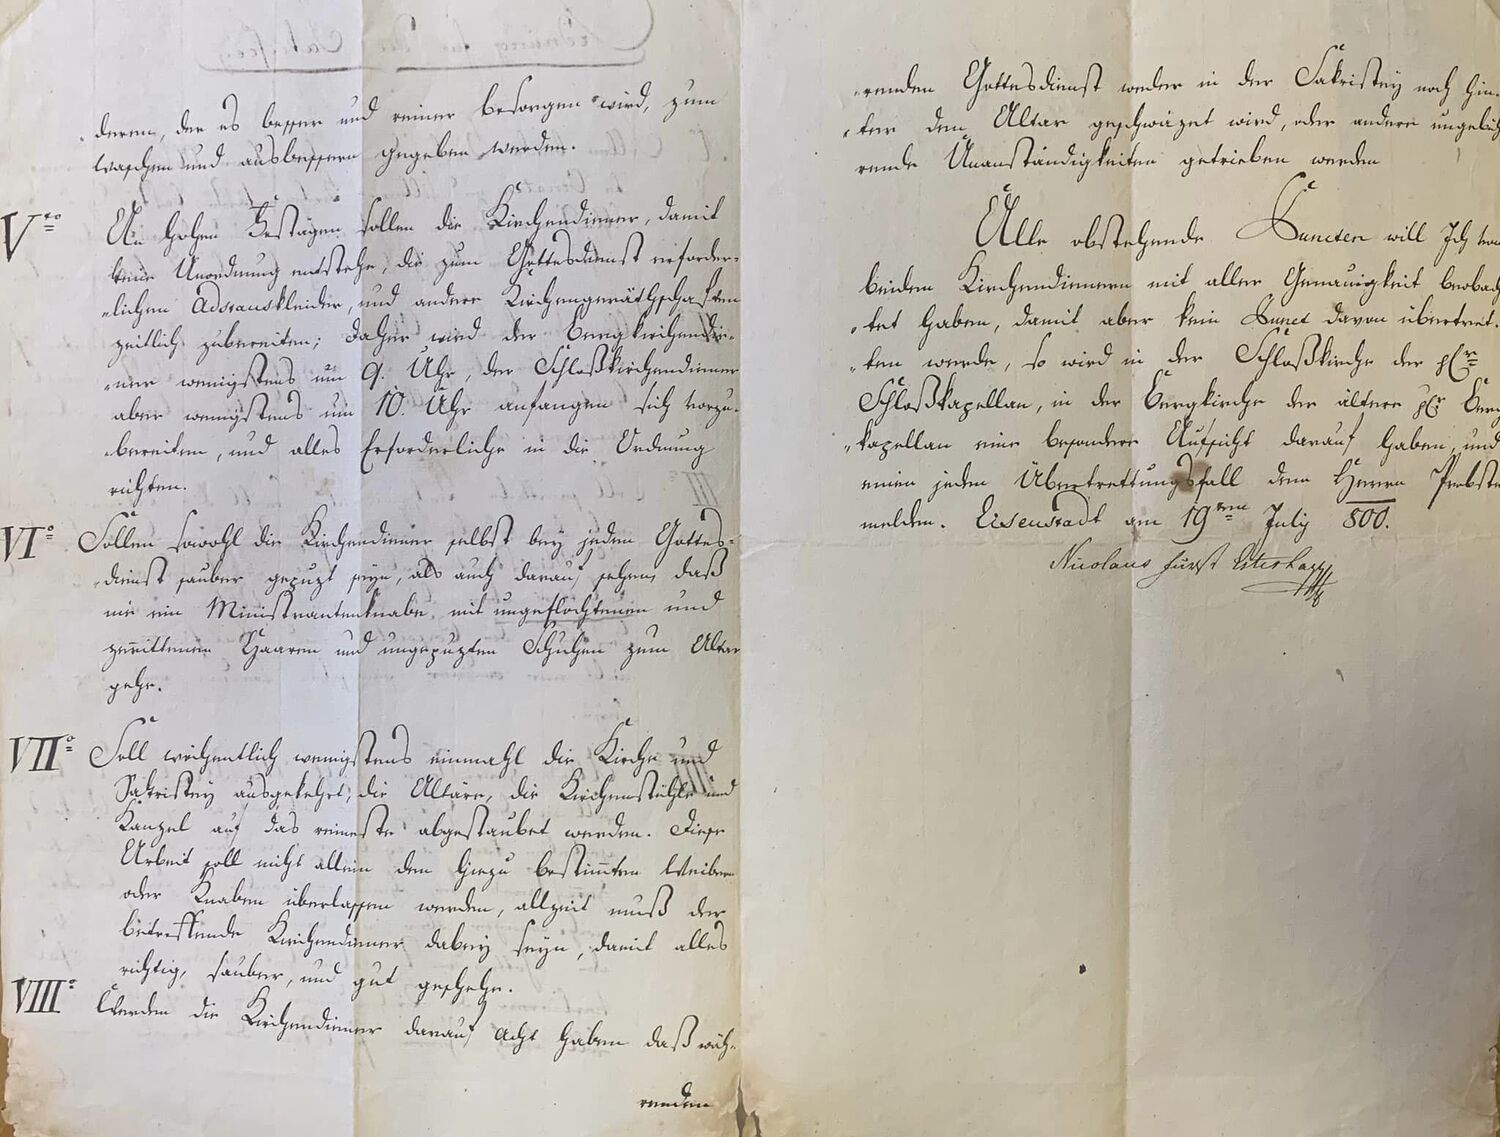 derem, der es besser und reiner besorgen wird, zum
waschen und ausbessern gegeben werden.
V.to An hohen Festägen sollen die Kirchendiener, damit
keine Unordnung entstehe, die zum Gottesdienst erforder-
-lichen Advranskleider, und andere Kirchengeräthschaften
zeitlich zubereiten; daher wird der Bergkirchendie-
-ner wenigstens um 9. Uhr, der Schloßkirchendiener
aber wenigstens um 10. Uhr anfangen sich vorzu-
bereiten, und alles Erforderliche in die Ordnung
richten.
VIo Sollen sowohl die Kirchendiener selbst bey jedem Gottes-
-dienst sauber gepuzt seyn, als auch darauf sehen, daß
nie ein Ministrantenknabe mit ungeflochtenen und
zerrittenen Haaren und ungepuzten Schuhen zum Altar
gehe.
VIIo Soll wöchentlich wenigstens einmahl die Kirche und
Sakristey ausgekehrt, die Altäre, die Kirchenstühle und
Kanzel auf das reineste abgestaubet werden. Diese
Arbeit soll nicht allein den hiezu bestim̄ten Weibern
oder Knaben überlassen werden, allzeit muß der
betreffende Kirchendiener dabey seyn, damit alles
richtig, sauber, und gut geschehe.
VIIIo Werden die Kirchendiener darauf acht haben daß wäh-
renden
-renden Gottesdienst weder in der Sakristey noch hin-
-ter dem Altar geschwäzet wird, oder andere ungebüh
rende Unanständigkeiten getrieben werden
Alle obstehende Puncten will Ich von
beiden Kirchendienern mit aller Genauigkeit beobach
-tet haben, damit aber kein Punct davon übertret-
-ten werde, so wird in der Schloßkirche der H:r
Schloßkapellan, in der Bergkirche der ältere H:r Berg
-kapellan eine besondere Aufsicht darauf haben, und
einen jeden Übertrettungsfall dem Herrn Probste
melden. Eisenstadt am 19ten July 800.
Nicolaus Fürst Esterhazy